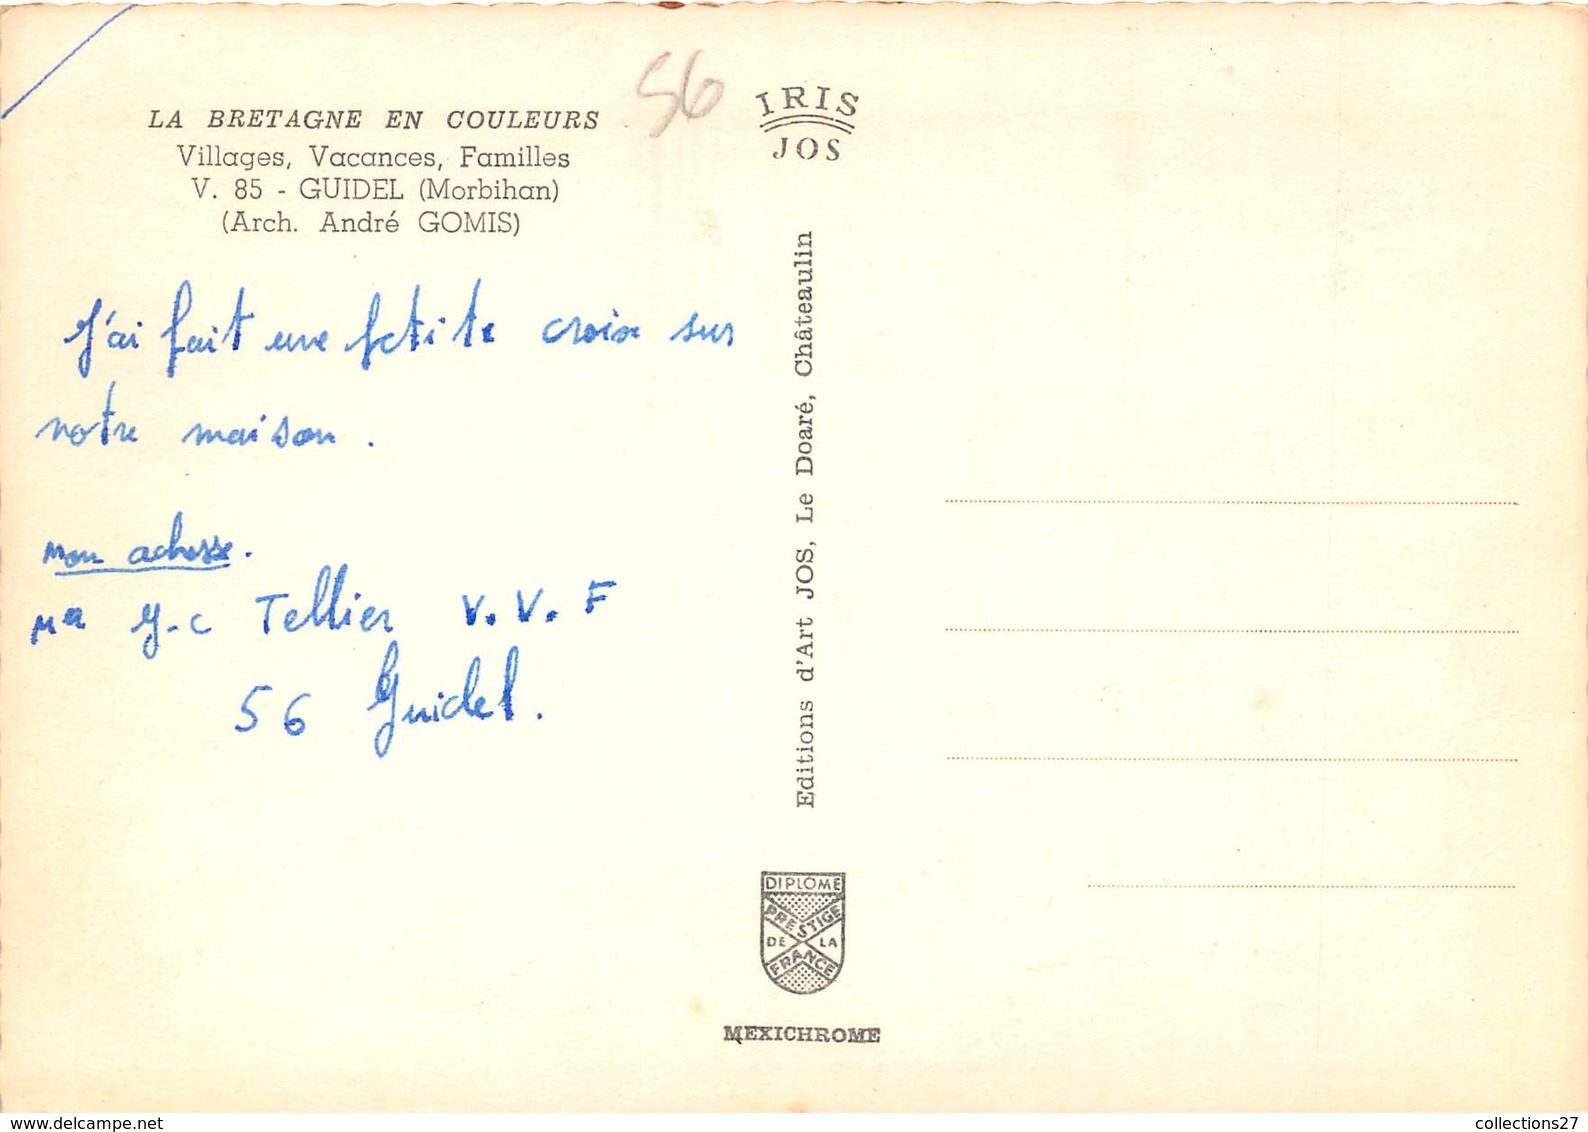 56
LA BRETAGNE EN COULEURS
Villages, Vacances, Familles
V. 85 - GUIDEL (Morbihan)
(Arch. André GOMIS)
IRIS
JOS
J'ai fait une petite croix sur
notre maison.
mon adresse.
Mr J-C Tellier V.V.F
56 Guidel.
Editions d'Art JOS, Le Doaré, Châteaulin
DIPLOME
PRESTIGE
DE LA
FRANCE
MEXICHROME
collections27